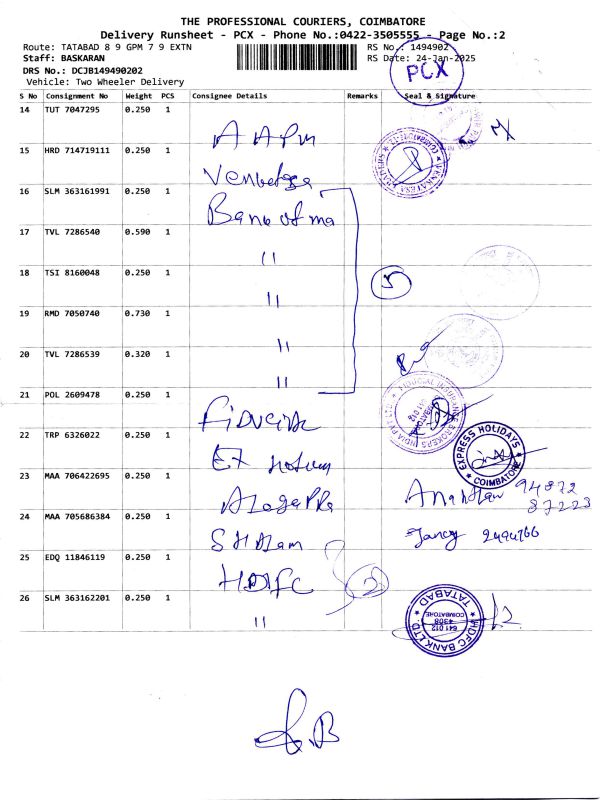 THE PROFESSIONAL COURIERS, COIMBATORE
Delivery Runsheet - PCX - Phone No.:0422-3505555 - Page No.:2
Route: TATABAD 8 9 GPM 7 9 EXTN
RS No.: 1494902
Staff: BASKARAN
RS Date: 24-Jan-2025
PCX
DRS No.: DCJB149490202
Vehicle: Two Wheeler Delivery
S No Consignment No Weight PCS Consignee Details Remarks Seal & Signature
14 TUT 7047295 0.250 1
15 HRD 714719111 0.250 1
16 SLM 363161991 0.250 1 Bank of ma
17 TVL 7286540 0.590 1 "
18 TSI 8160048 0.250 1 " 5
19 RMD 7050740 0.730 1 "
20 TVL 7286539 0.320 1 "
21 POL 2609478 0.250 1
22 TRP 6326022 0.250 1
EXPRESS HOLIDAYS
COIMBATORE
23 MAA 706422695 0.250 1 94872
87223
24 MAA 705686384 0.250 1
25 EDQ 11846119 0.250 1 HDFC 2
26 SLM 363162201 0.250 1 "
HDFC BANK LTD
TATABAD
COIMBATORE
641 012
4308